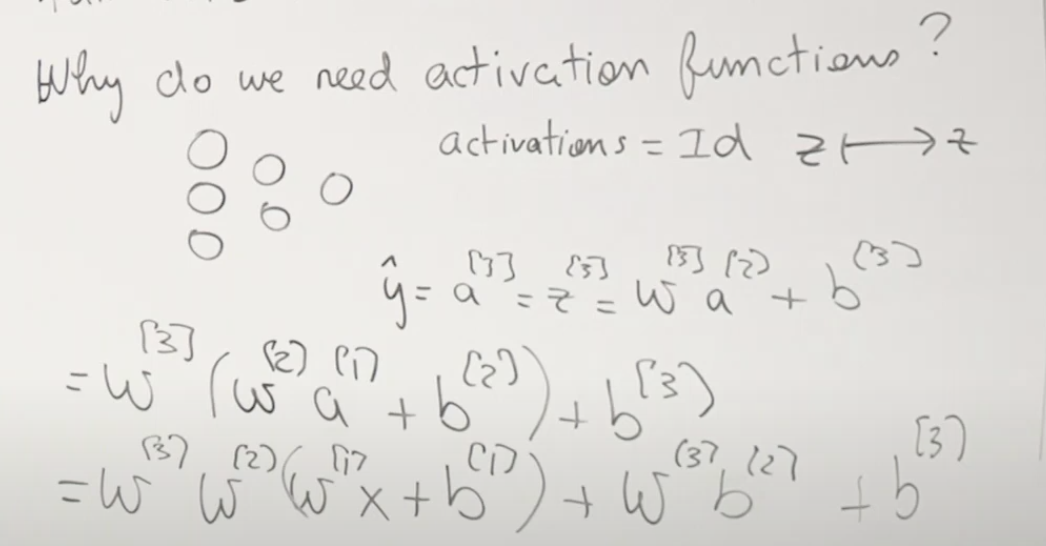 Why do we need activation functions?
activations = Id z ↦ z
ŷ = a^[3] = z^[3] = w^[3] a^[2] + b^[3]
= w^[3] (w^[2] a^[1] + b^[2]) + b^[3]
= w^[3] w^[2] (w^[1] x + b^[1]) + w^[3] b^[2] + b^[3]